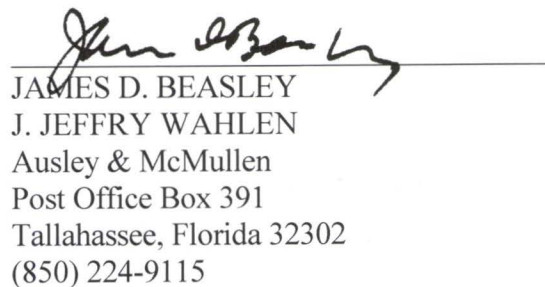 James D. Beasley
JAMES D. BEASLEY
J. JEFFRY WAHLEN
Ausley & McMullen
Post Office Box 391
Tallahassee, Florida 32302
(850) 224-9115